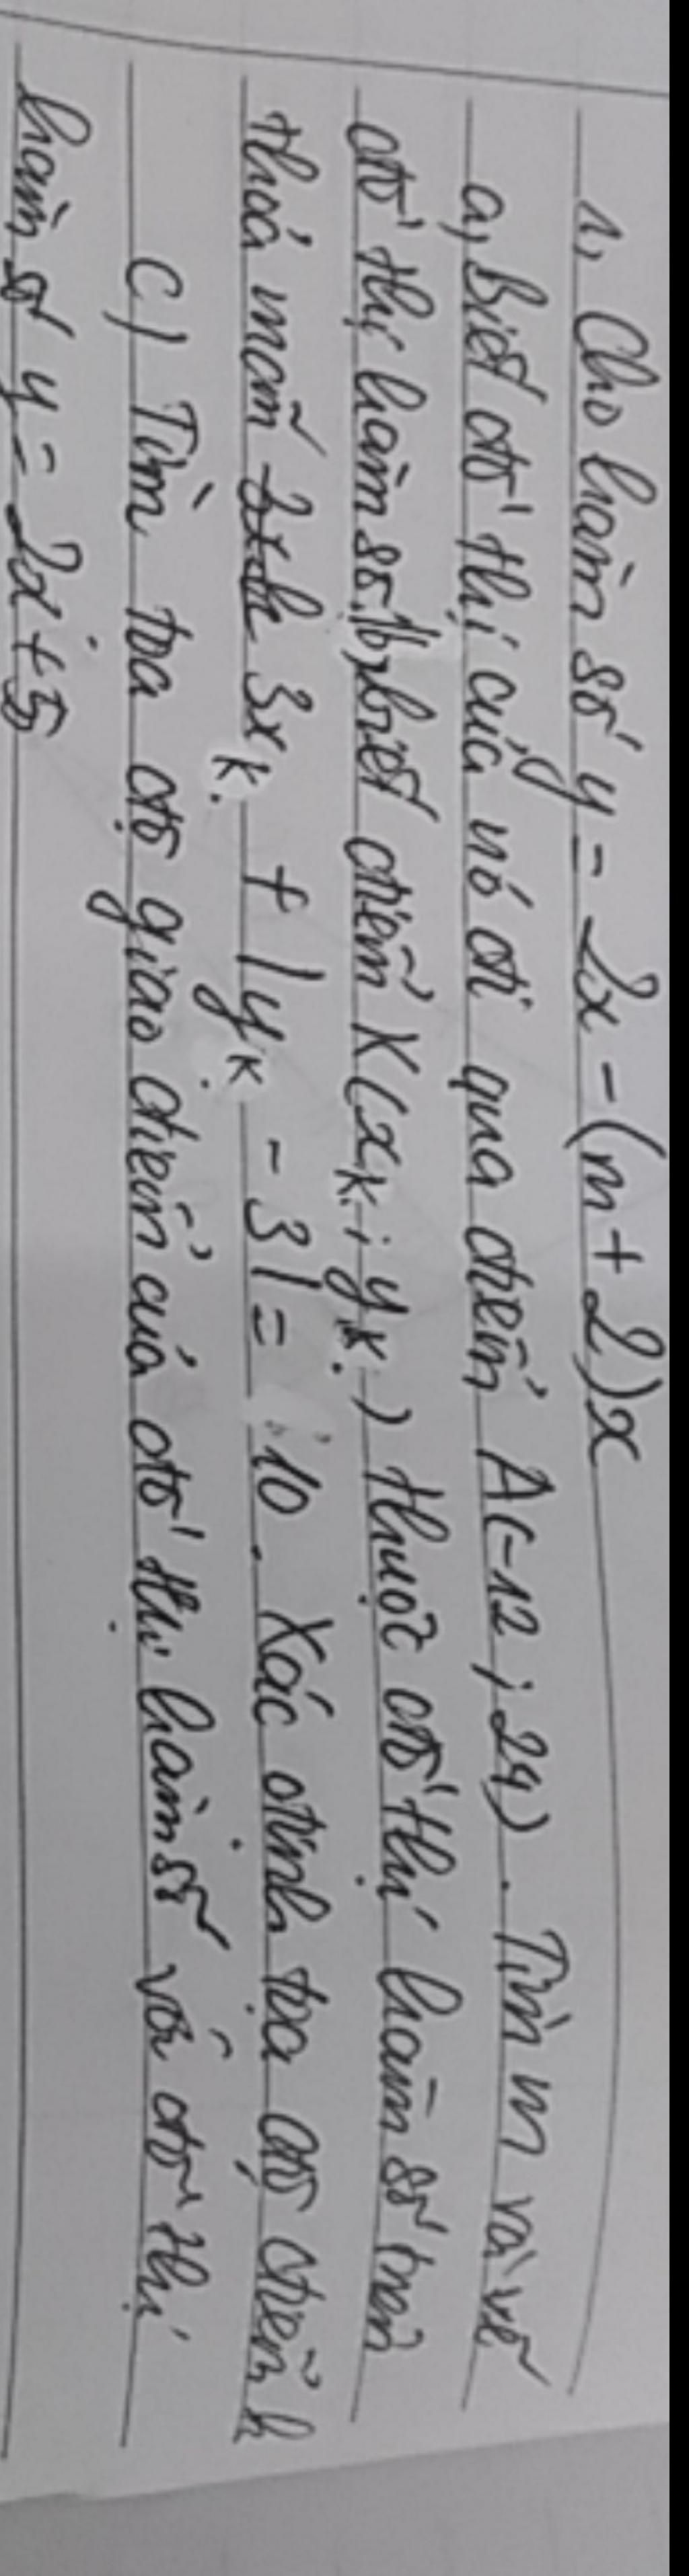 1, Cho hàm số y = 2x - (m + 2)x
a, Biết đồ thị của nó đi qua điểm A(-12 ; 24). Tìm m và vẽ
đồ thị hàm số. b, biết điểm K(x_K ; y_K) thuộc đồ thị hàm số trên
thoả mãn 3x_K + |y_K - 3| = 10. Xác định tọa độ điểm k
c) Tìm tọa độ giao điểm của đồ thị hàm số với đồ thị
hàm số y = 2x + 5